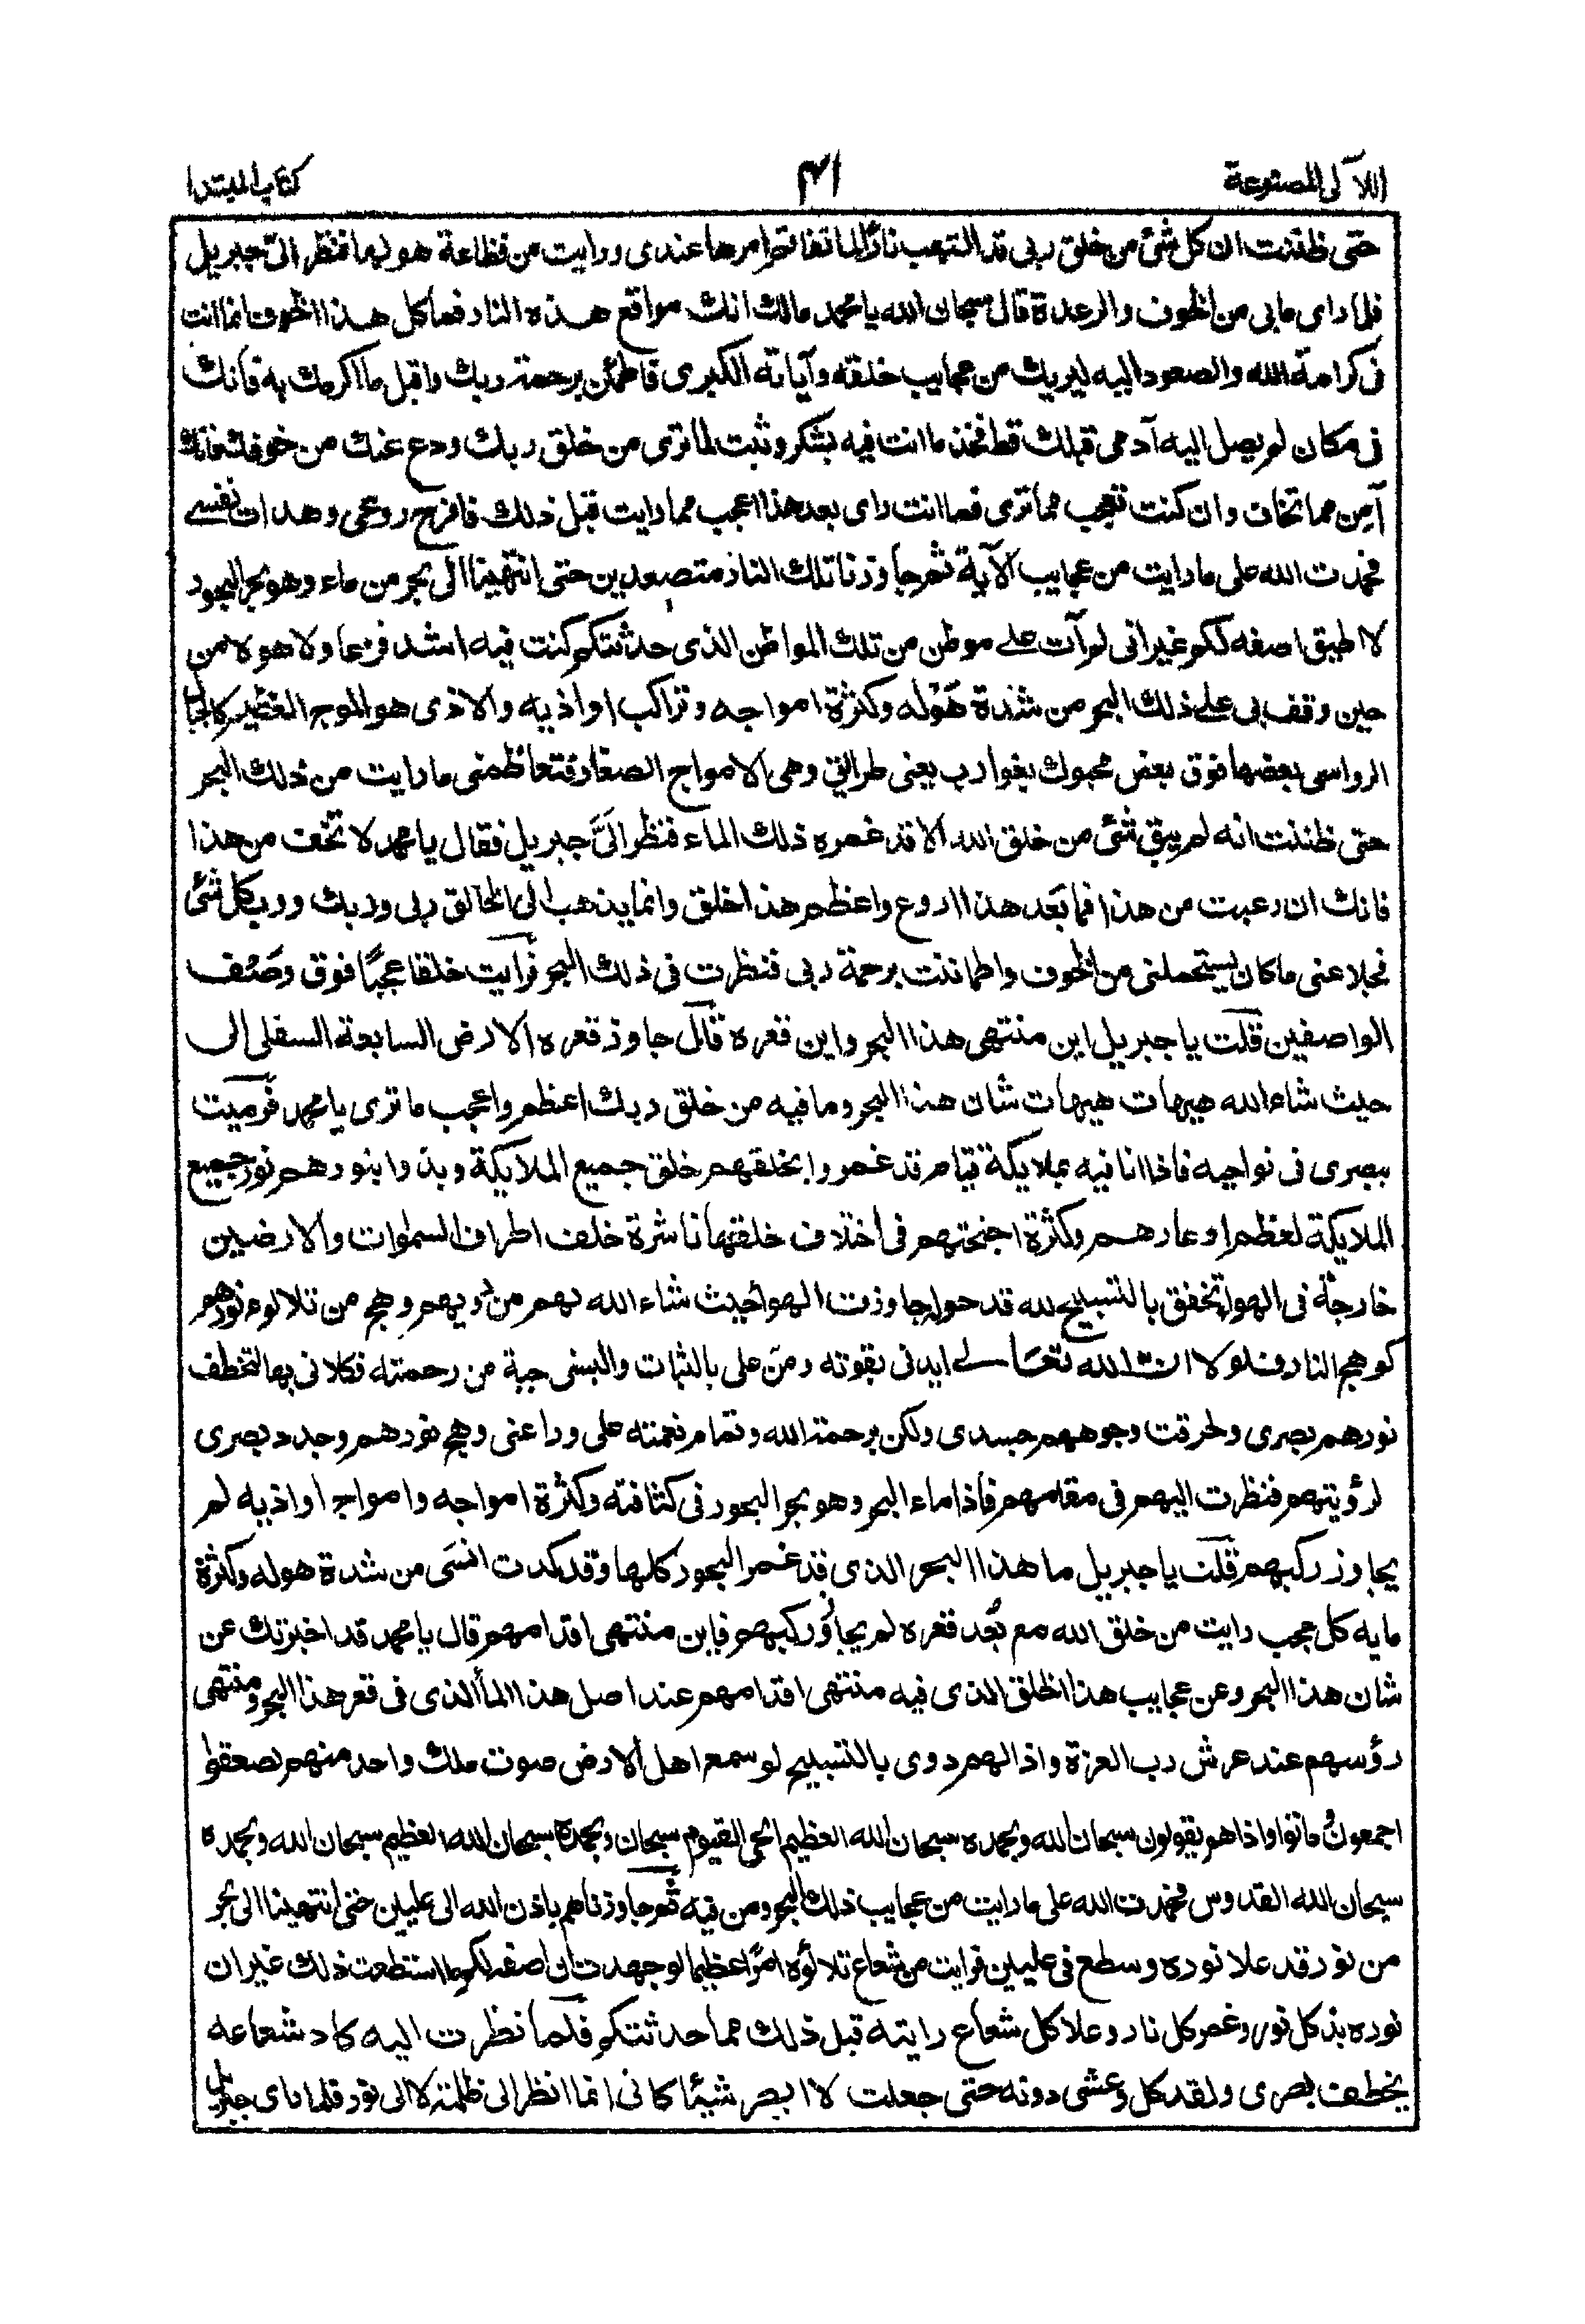 اللآلى المصنوعة ٤١ كتاب المبتدا
حتى ظننت ان كل شئ من خلق ربى قد التهب نارًا لما تفاقم امرها عندى ورايت من فظاعة هولها فنظر الىّ جبريل
فلما راى ما بى من الخوف والرعدة قال سبحان الله يا محمد مالك انك مواقع هذه النار فما كل هذا الخوف انما انت
فى كرامة الله والصعود اليه ليريك من عجايب خلقه وآياته الكبرى فاطمئن برحمة ربك واقبل ما اكرمك به فانك
فى مكان لم يصل اليه آدمى قبلك قط فخذ ما انت فيه بشكر وثبت لما ترى من خلق ربك ودع عنك من خوفك فانك
آمن مما تخاف وان كنت تعجب مما ترى فما انت راى بعد هذا اعجب مما رايت قبل ذلك فافرخ روعى وهدات نفسے
فحمدت الله على ما رايت من عجايب الآية ثم جاوزنا تلك النار متصعدين حتى انتهينا الى بحر من ماء وهو بحر البحور
لا اطيق اصفه لكم غير انى لم آت على موطن من تلك المواطن الذى حدثتكم كنت فيه اشد فزعا ولا هوه من
حين وقف بى على ذلك البحر من شدة هَوْله وكثرة امواجه وتراكب اواذيه والاذى هو الموج العظيم كالجبال
الرواسى بعضها فوق بعض محبوك بغوارب يعنى طرائق وهى الامواج الصغار فتعاظمنى ما رايت من ذلك البحر
حتى ظننت انه لم يبق شئ من خلق الله الا قد غمره ذلك الماء فنظر الىَّ جبريل فقال يا محمد لا تخف من هذا
فانك ان رعبت من هذا فما بَعد هذا اروع واعظم هذا خلق وانما يذهب الى الخالق ربى وربك ورب كل شئ
فجلا عنى ما كان يستحملنى من الخوف واطماننت برحمة ربى فنظرت فى ذلك البحر فرايت خلقا عجبًا فوق وصْف
الواصفين قلت يا جبريل اين منتهى هذا البحر واين قعره قال جاوز قعره الارض السابعة السفلى الى
حيث شاء الله هيهات هيهات شان هذا البحر وما فيه من خلق ربك اعظم واعجب ما ترى يا محمد فرميت
ببصرى فى نواحيه فاذا انا فيه بملايكة قيام قد غمروا بخلقهم خلق جميع الملايكة وبذوا بنورهم نور جميع
الملايكة لعظم اوعارهم وكثرة اجنحتهم فى اختلاف خلقتها ناشرة خلف اطراف السموات والارضين
خارجة فى الهوا تخفق بالتسبيح لله قد حول جاوزت الهوا حيث شاء الله لهم من دويهم وهج من تلالوء نورهم
كوهج النار فلولا ان الله تعالى ايدنى بقوته ومنّ على بالثبات والبسنى جبة من رحمته فكلانى بها لتخطف
نورهم بصرى ولحرقت وجوههم جسدى ولكن برحمة الله وتمام نعمته على ورا عنى وهج نورهم وجدد بصرى
لرؤيتهم فنظرت اليهم فى مقامهم فاذا ماء البحر وهو بحر البحور فى كثافته وكثرة امواجه وامواج اواذيه لم
يجاوز ركبهم قلت يا جبريل ما هذا البحر الذى قد غمر البحور كلها وقد كدت انسَى من شدة هوله وكثرة
مايه كل عجب رايت من خلق الله مع بُعد قعره لم يجاوُز ركبهم فاين منتهى اقدامهم قال يا محمد قد اخبرتك عن
شان هذا البحر وعن عجايب هذا الخلق الذى فيه منتهى اقدامهم عند اصل هذا الماء الذى فى قعر هذا البحر ومنتهى
رؤسهم عند عرش رب العزة واذا لهم دوى بالتسبيح لو سمع اهل الارض صوت ملك واحد منهم لصعقوا
اجمعون وماتوا واذا هم يقولون سبحان الله وبحمده سبحان الله العظيم الحى القيوم سبحان وبحمده سبحان الله العظيم سبحان الله وبحمده
سبحان الله القدوس فحمدت الله على ما رايت من عجايب ذلك البحر ومن فيه ثم جاوزناهم باذن الله الى عليين حتى انتهينا الى بحر
من نور قد علا نوره وسطع فى عليين فرايت من شعاع تلالؤه امرًا عظيما لو جهدت ان اصفه لكم ما استطعت ذلك غير ان
نوره بذ كل نور وغمر كل نار وعلا كل شعاع رايته قبل ذلك مما حدثتكم فلما نظرت اليه كاد شعاعه
يخطف بصرى ولقد كل وعشى دونه حتى جعلت لا ابصر شيئا كانى انما انظر الى ظلمة لا الى نور فلما راى جبريل